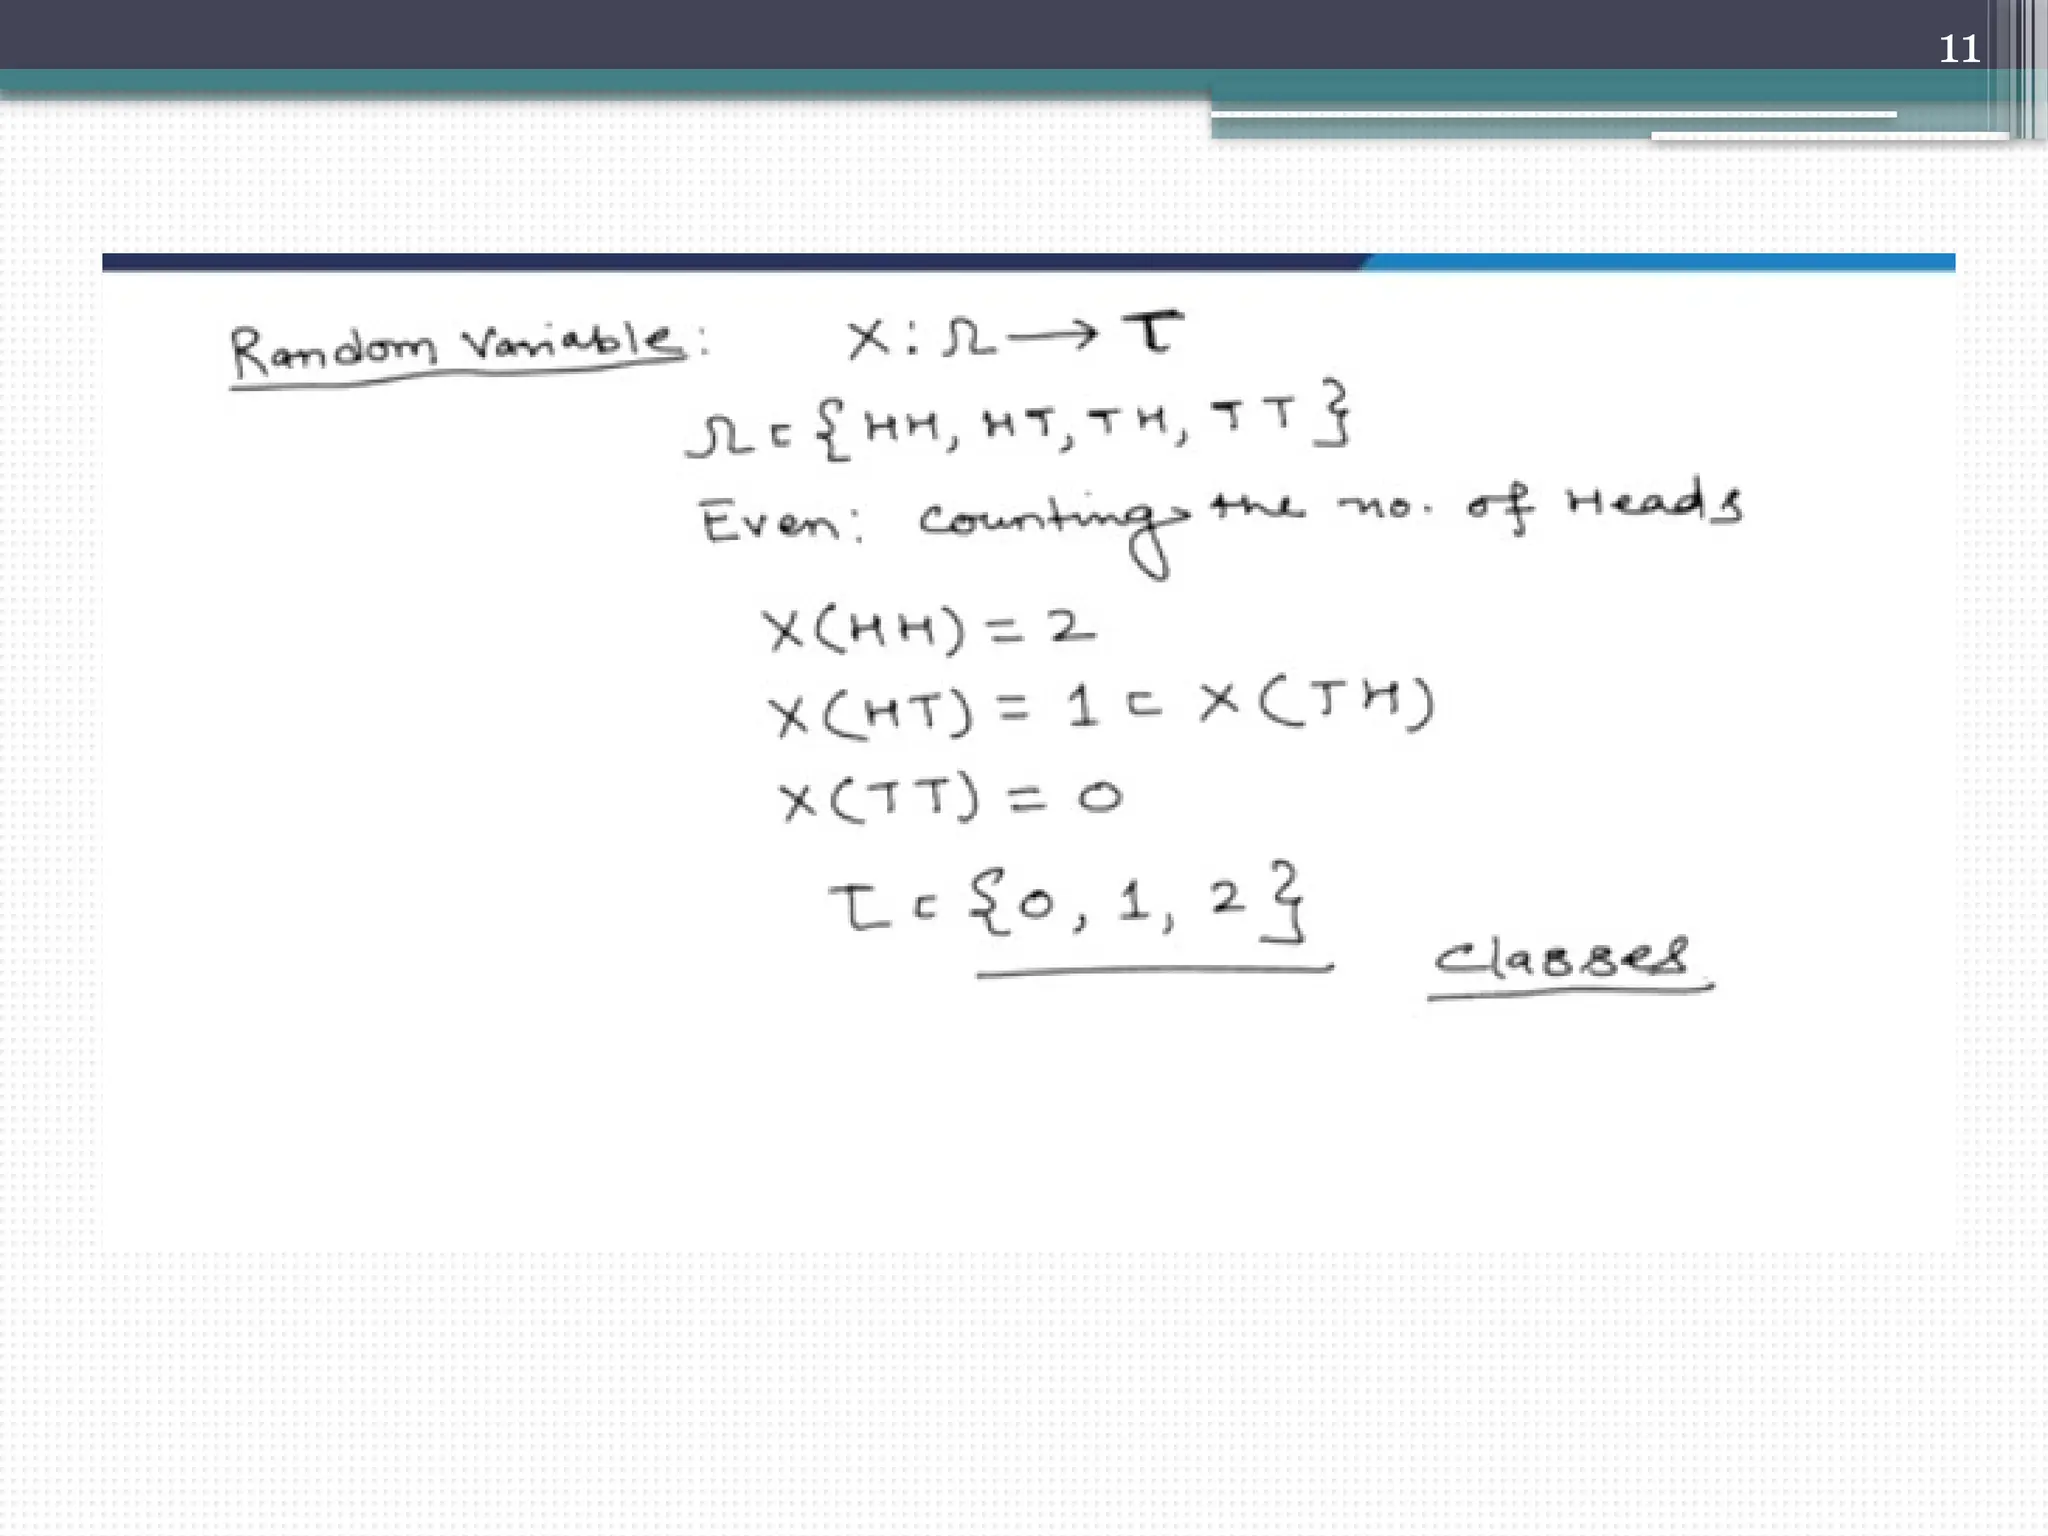 11
Random Variable: X: Ω → T
Ω = {HH, HT, TH, TT}
Even: counting the no. of Heads
X(HH) = 2
X(HT) = 1 = X(TH)
X(TT) = 0
T = {0, 1, 2}
classes